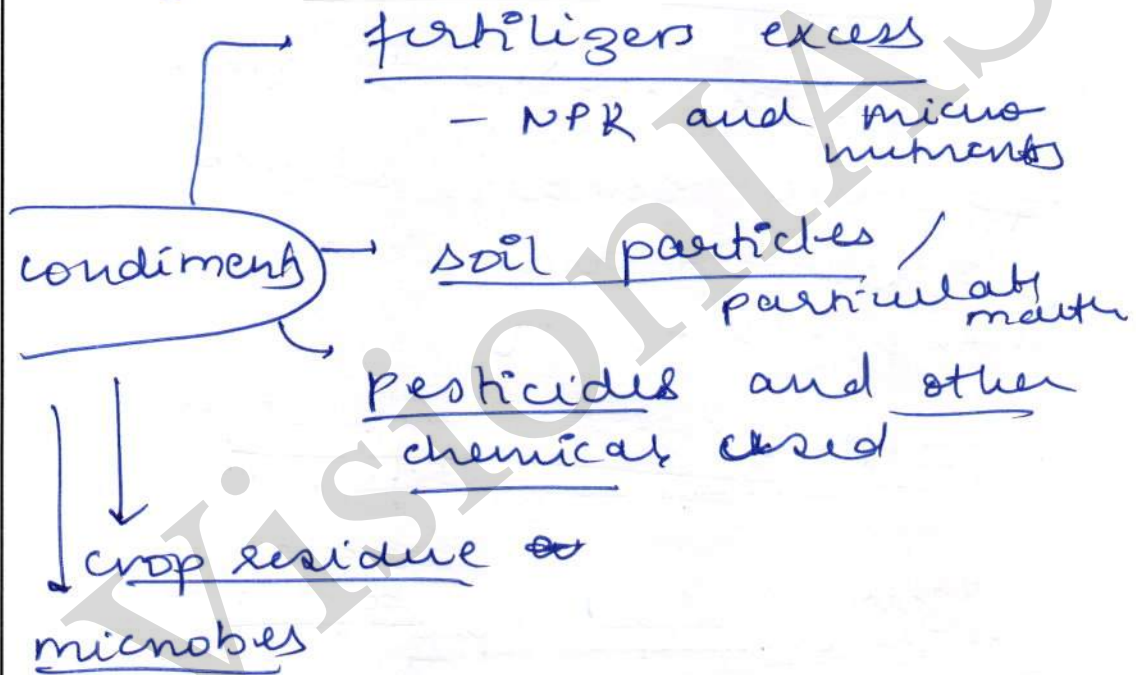 fertilizers excess
- NPK and micro
nutrients
condiments
soil particles /
particulate
matter
pesticides and other
chemical used
crop residue
microbes
VisionIAS